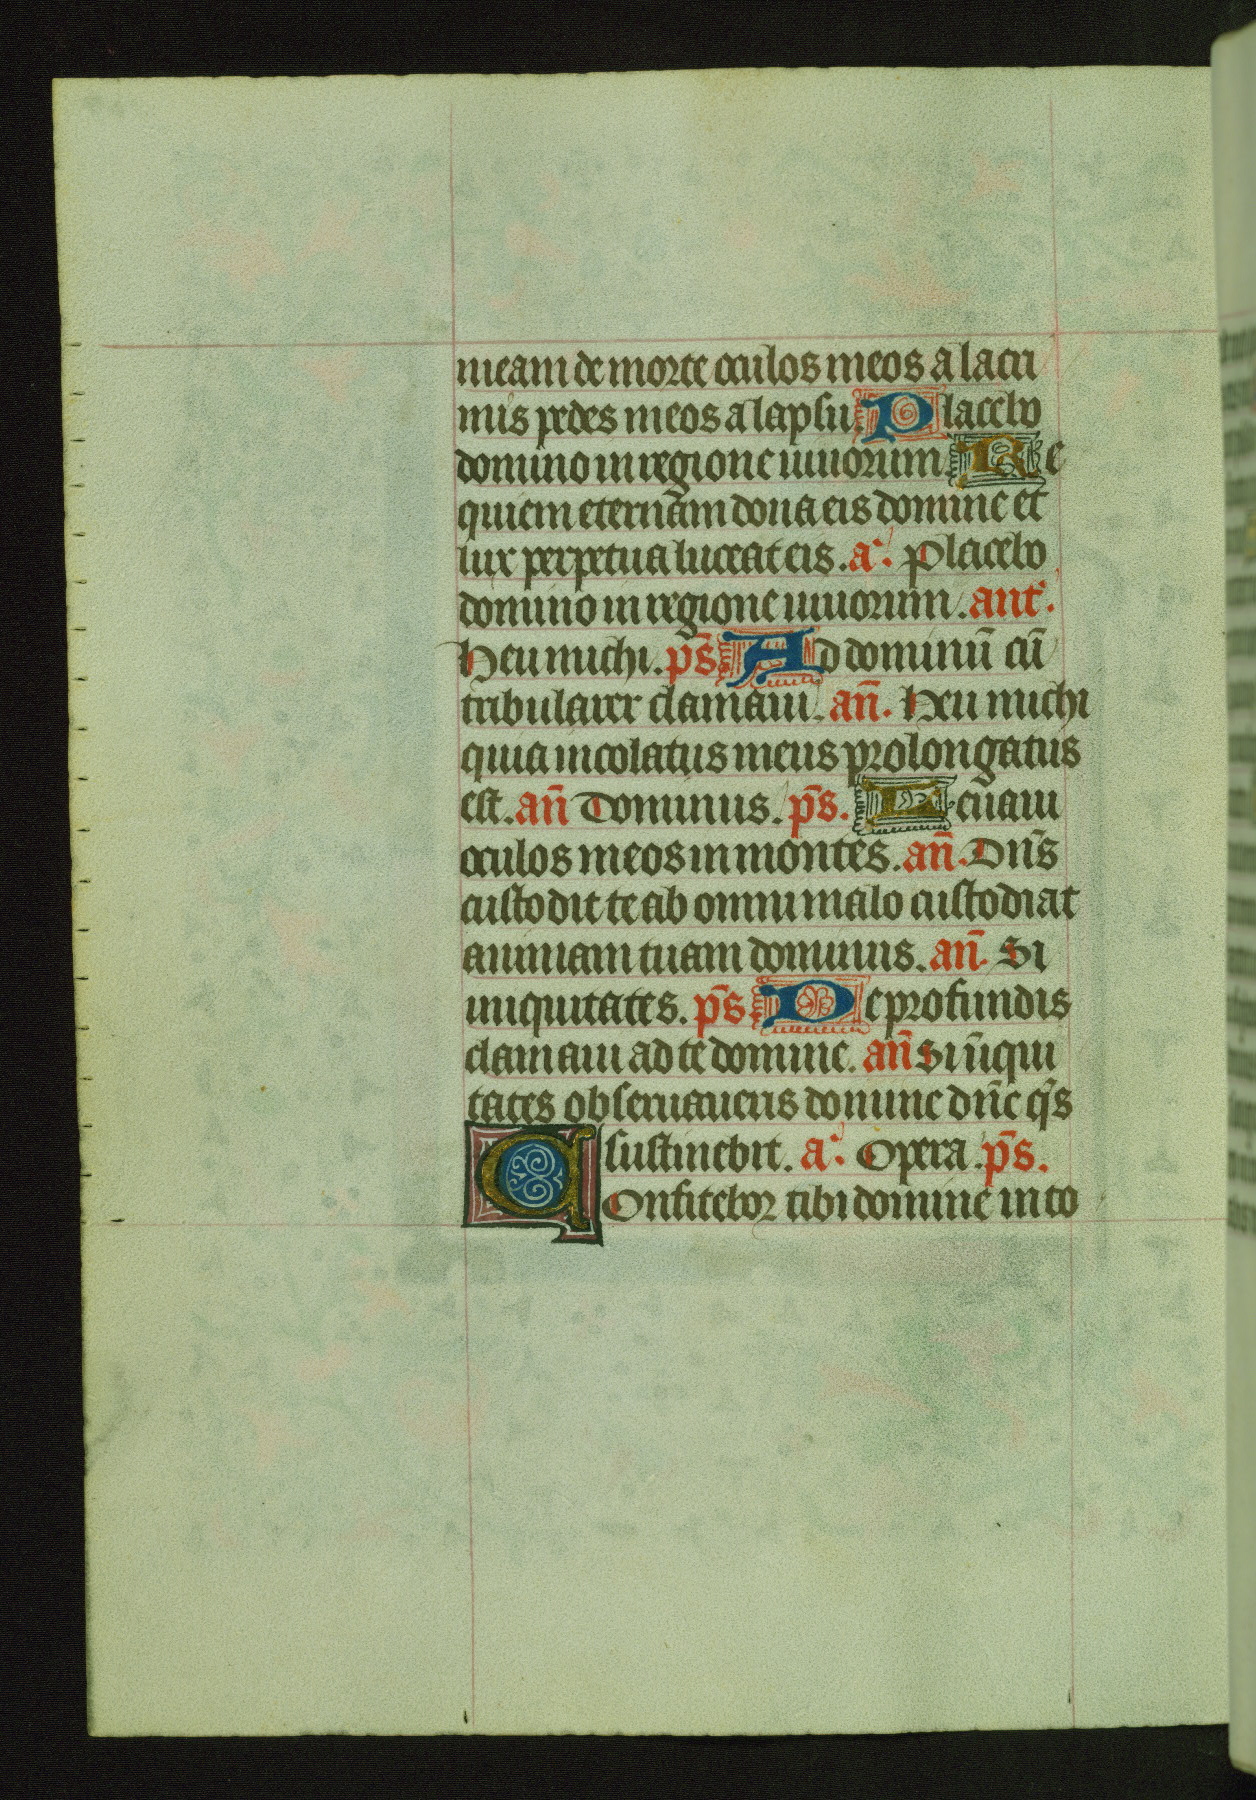 meam de morte oculos meos a lacri
mis pedes meos a lapsu. Placebo
domino in regione uiuorum. Re
quiem eternam dona eis domine et
lux perpetua luceat eis. a. Placebo
domino in regione uiuorum. ant.
Heu michi. ps̄ Ad dominū cū
tribularer clamaui. an̄. Heu michi
quia incolatus meus prolongatus
est. an̄ Dominus. ps̄. Leuaui
oculos meos in montes. an̄. Dn̄s
custodit te ab omni malo custodiat
animam tuam dominus. an̄. Si
iniquitates. ps̄ De profundis
clamaui ad te domine. an̄ Si īiqui
tates obseruaueris domine dn̄e q̄s
sustinebit. a. Opera. ps̄.
Confitebor tibi domine in to